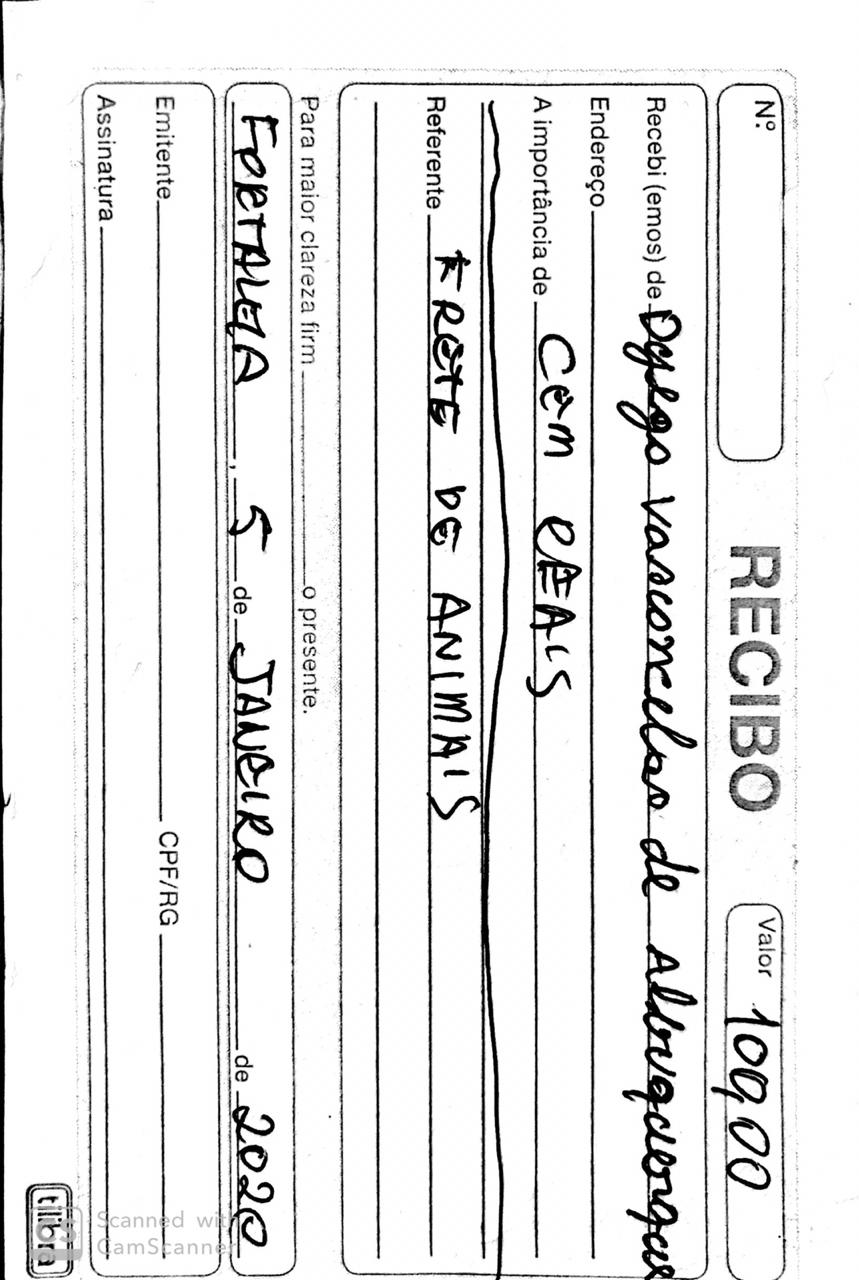 Nº
RECIBO
Valor 100,00
Recebi (emos) de Dyego Vasconcelos de Albuquerque
Endereço
A importância de Cem REAIS
Referente FRETE DE ANIMAIS
Para maior clareza firm o presente.
FORTALEZA, 5 de JANEIRO de 2020
Emitente CPF/RG
Assinatura
tilibra
Scanned with
CamScanner